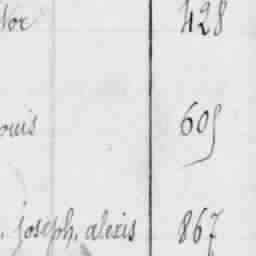 tor 428
ouis 605
. joseph. alexis 867